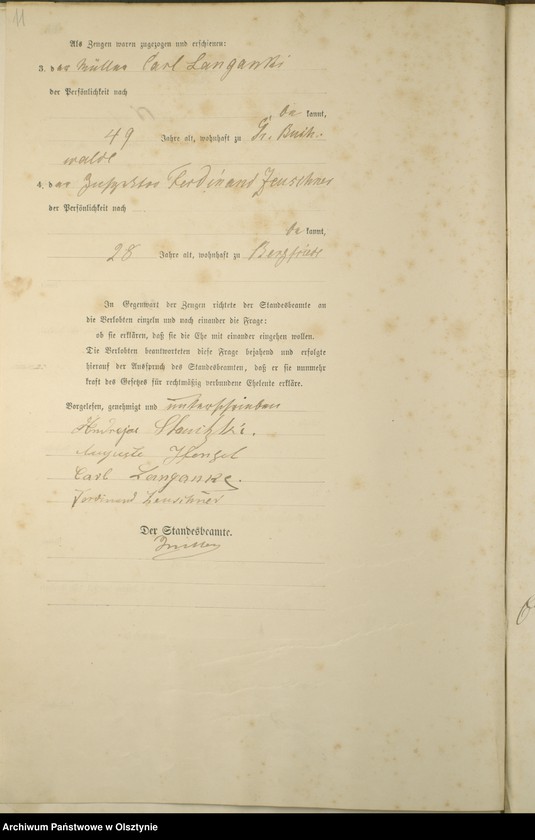 11
Als Zeugen waren zugezogen und erschienen:
3. der Müller Carl Langanki
der Persönlichkeit nach
be kannt,
49 Jahre alt, wohnhaft zu Gr. Buch-
walde
4. der Inspektor Ferdinand Zenschner
der Persönlichkeit nach
be kannt,
28 Jahre alt, wohnhaft zu Bergfriede
In Gegenwart der Zeugen richtete der Standesbeamte an
die Verlobten einzeln und nach einander die Frage:
ob sie erklären, daß sie die Ehe mit einander eingehen wollen.
Die Verlobten beantworteten diese Frage bejahend und erfolgte
hierauf der Ausspruch des Standesbeamten, daß er sie nunmehr
kraft des Gesetzes für rechtmäßig verbundene Eheleute erkläre.
Vorgelesen, genehmigt und unterschrieben
Auguste Hensel
Carl Langanke.
Ferdinand Zenschner
Der Standesbeamte.
Archiwum Państwowe w Olsztynie